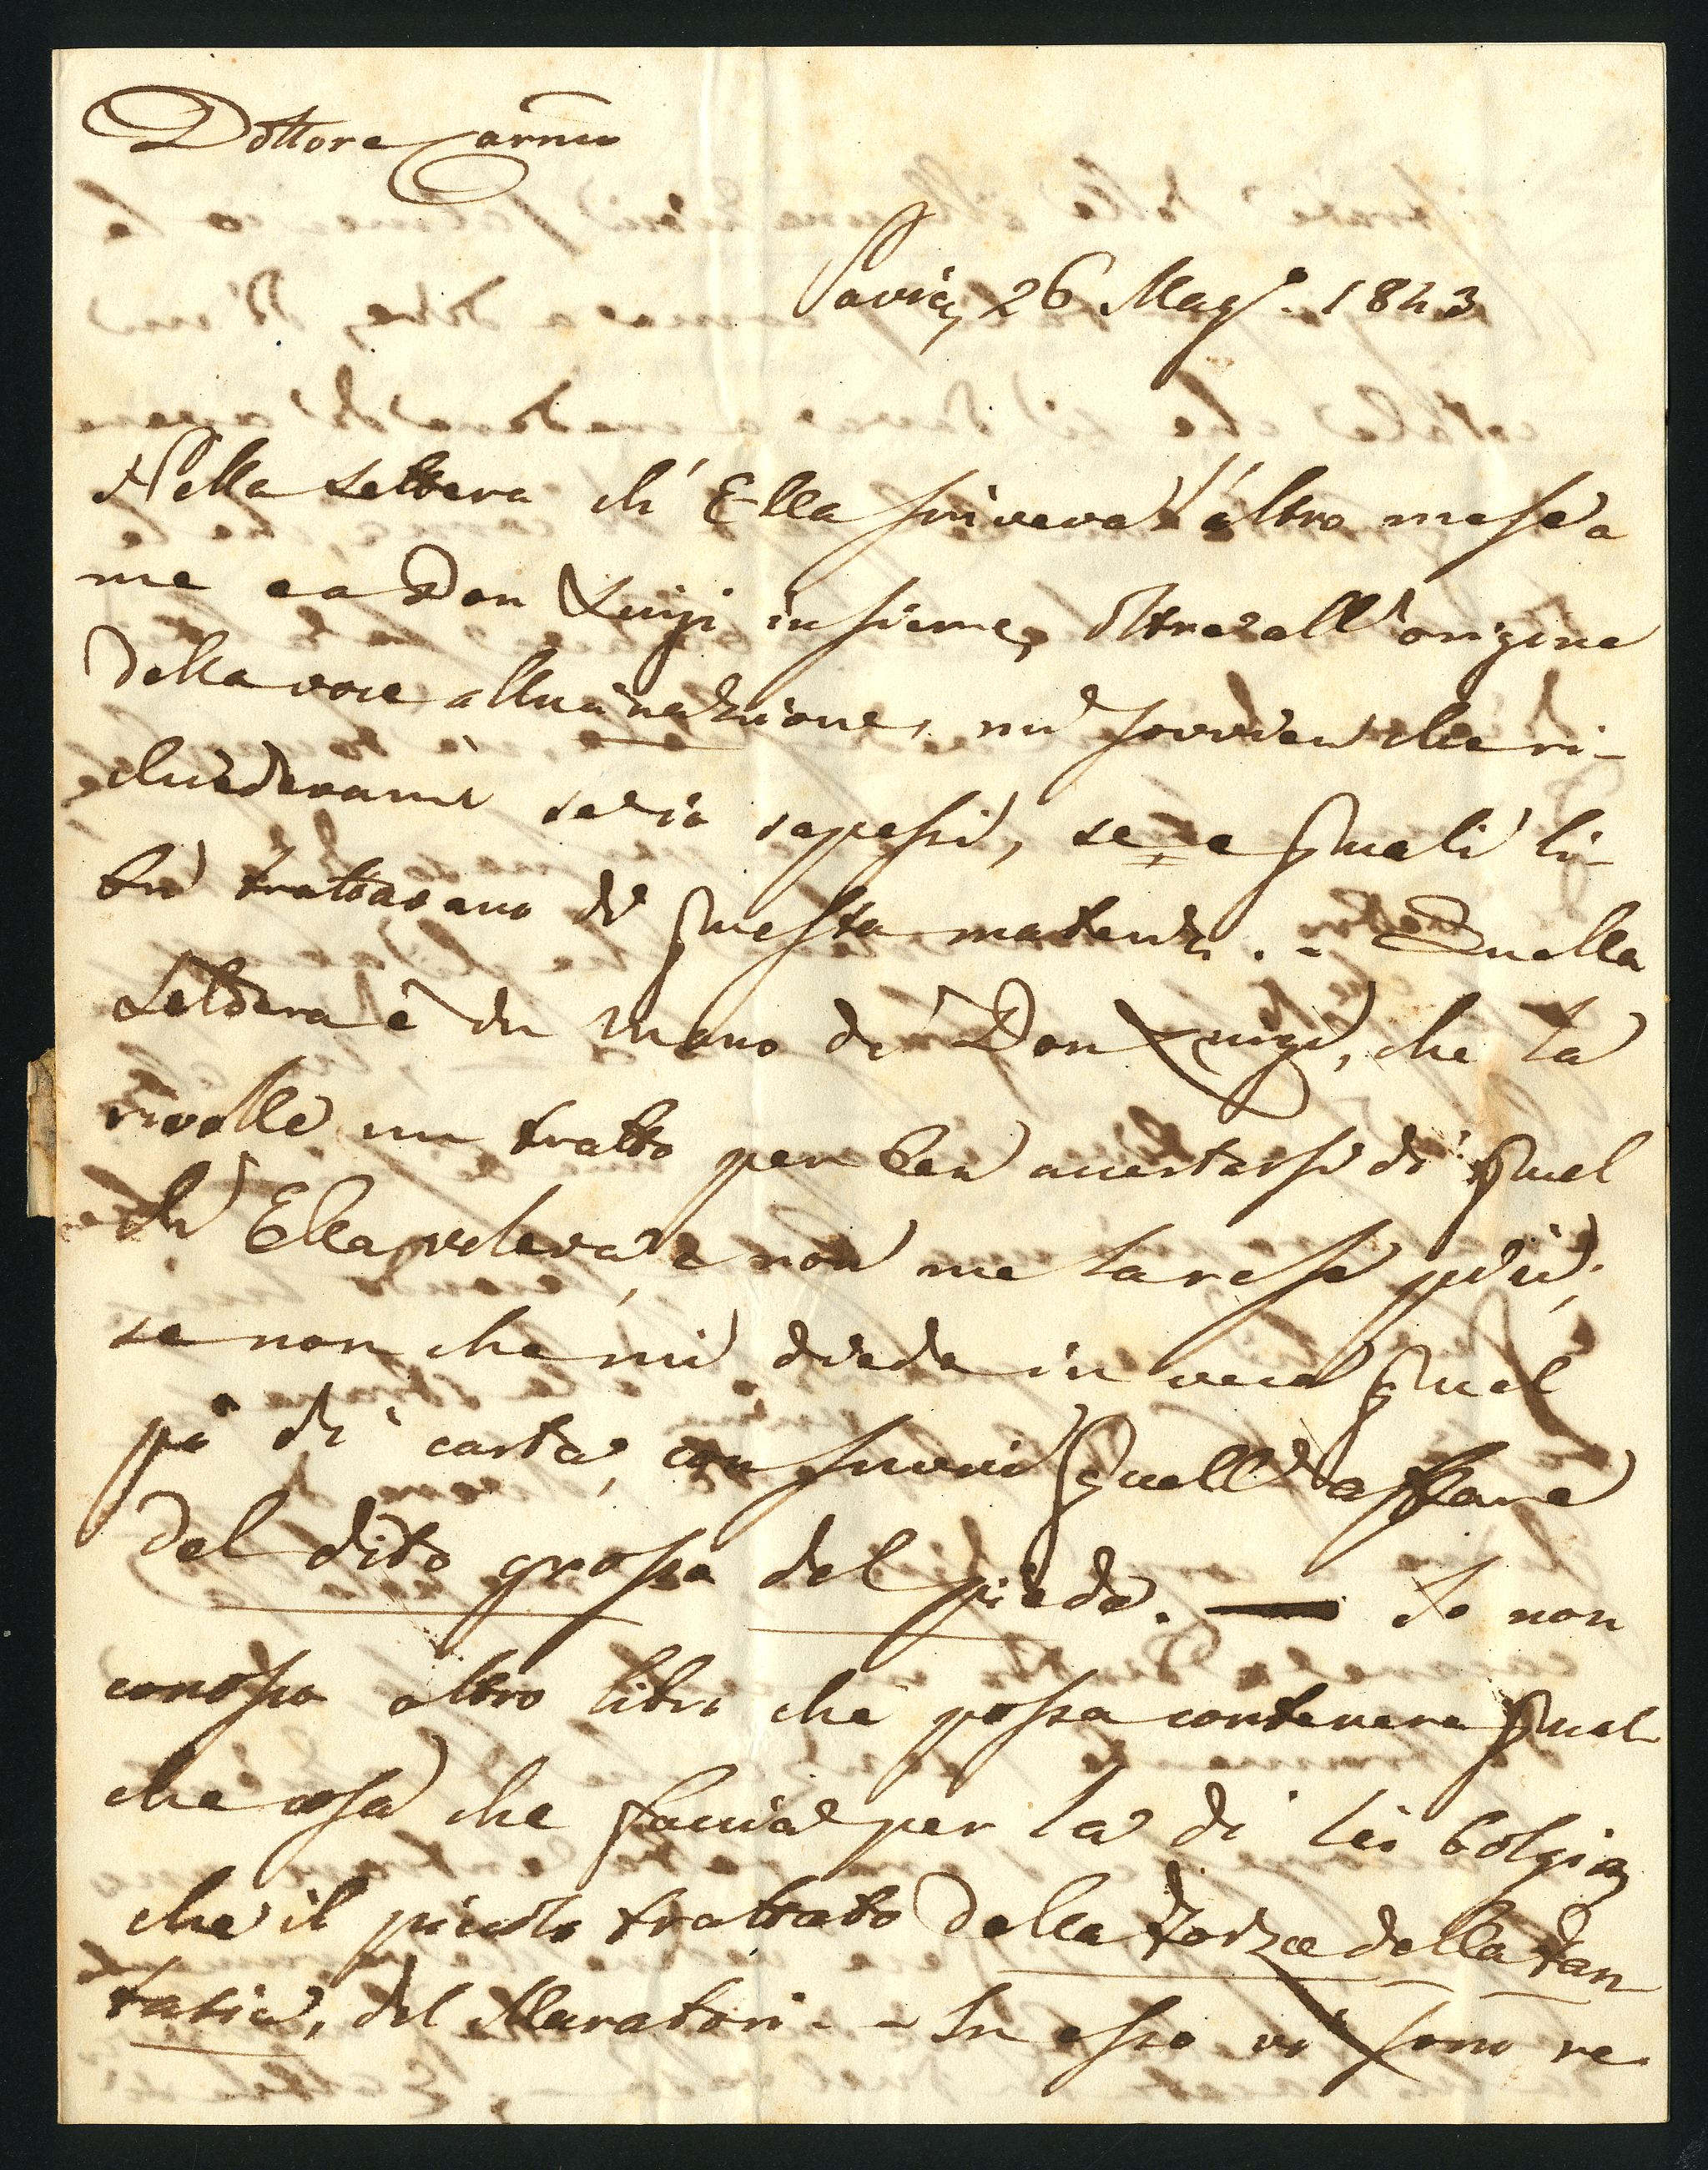 Dottore Carmo
Pavia, 26 Magg. 1843
Nella lettera ch' Ella scriveva l'altro mese a
me e a Don Luigi insieme, oltre all'origine
della voce allucinazione, mi sovvien che ri-
chiedevami se io sapessi, se e quali li-
bri trattavano di questa materia. - Quella
Lettera è in mano di Don Luigi, che la
rivolle un tratto per ben accertarsi di quel
ch' Ella voleva, e non me la rese più;
se non che mi diede in vece quel
pò di carta, con suvvi quell' affare
del dito grosso del piede. — Io non
conosco altro libro che possa contenere qual
che cosa che faccia per la di lei bolgia,
che il piccolo trattato della Forza della Fan
tasia, del Muratori. - In esso vi sono re